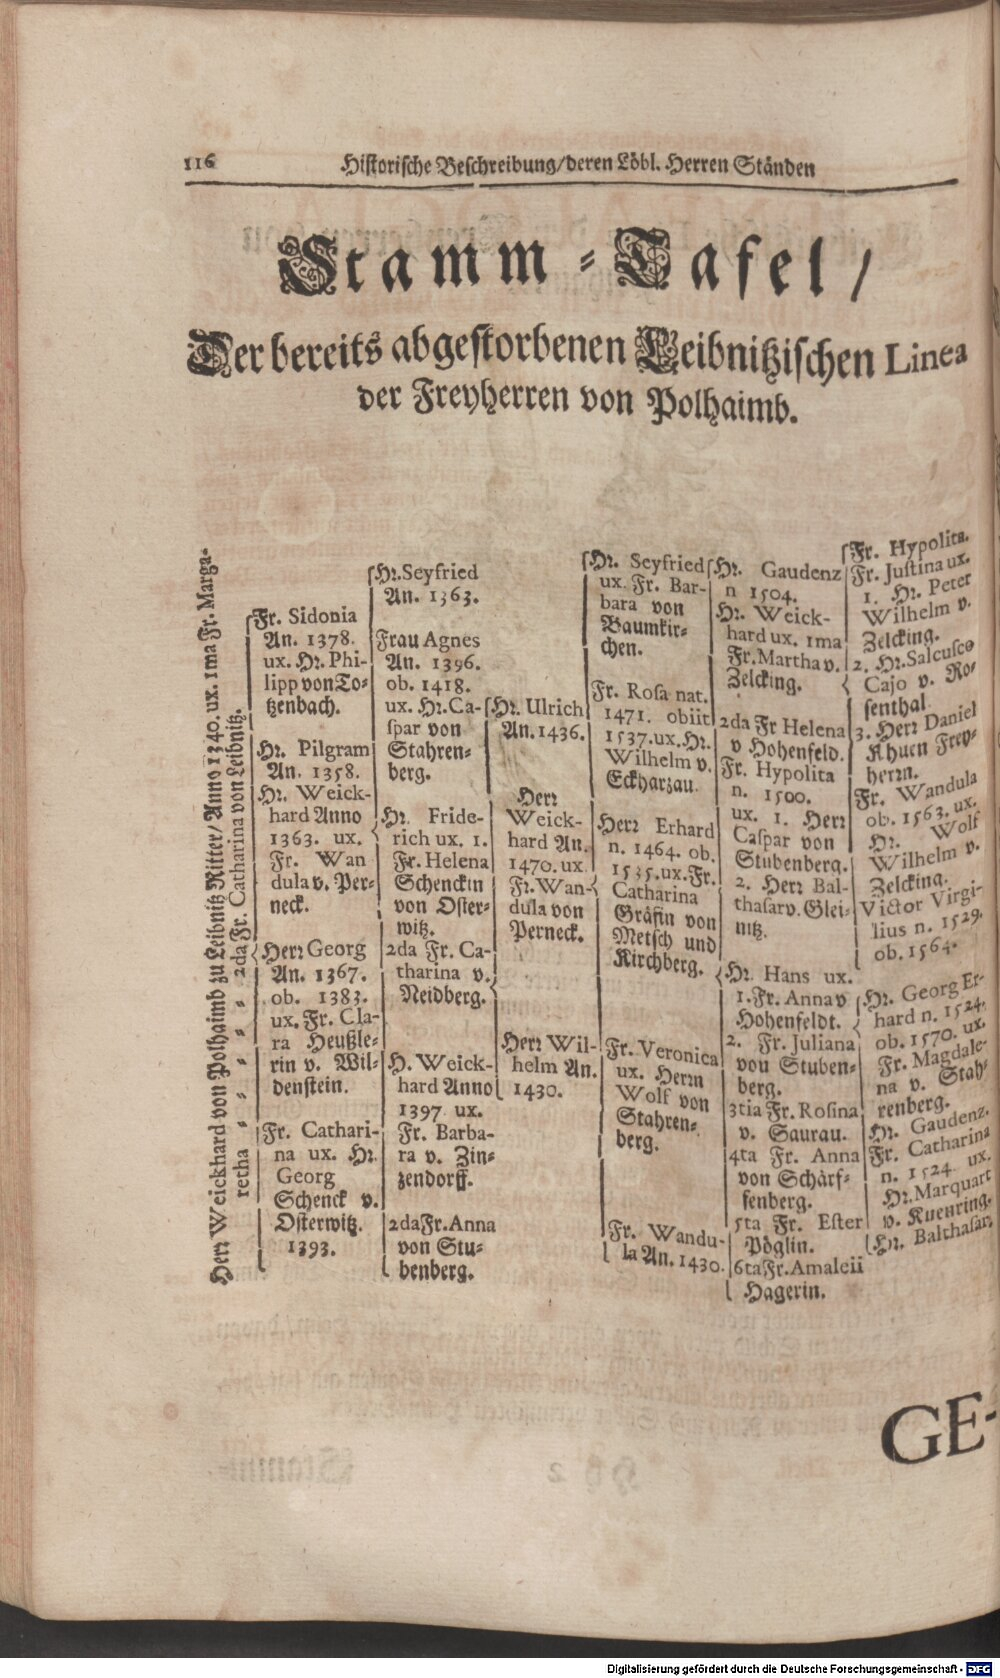 116
Historische Beschreibung/deren Löbl. Herren Ständen
Stamm-Tafel/
Der bereits abgestorbenen Leibnitzischen Linea
der Freyherren von Polhaimb.
Herr Weickhard von Polhaimb zu Leibnitz Ritter/ Anno 1340. ux. 1ma Fr. Marga-
retha - - - - - - 2da Fr. Catharina von Leibnitz.
Fr. Sidonia
An. 1378.
ux. Hr. Phi-
lipp von To-
tzenbach.
Hr. Pilgram
An. 1358.
Hr. Weick-
hard Anno
1363. ux.
Fr. Wan
dula v. Per-
neck.
Herr Georg
An. 1367.
ob. 1383.
ux. Fr. Cla-
ra Heußle-
rin v. Wil-
denstein.
Fr. Cathari-
na ux. Hr.
Georg
Schenck v.
Osterwitz.
1393.
Hr. Seyfried
An. 1363.
Frau Agnes
An. 1396.
ob. 1418.
ux. Hr. Ca-
spar von
Stahren-
berg.
Hr. Fride-
rich ux. 1.
Fr. Helena
Schenckin
von Oster-
witz.
2da Fr. Ca-
tharina v.
Neidberg.
H. Weick-
hard Anno
1397 ux.
Fr. Barba-
ra v. Zin-
zendorff.
2da Fr. Anna
von Stu-
benberg.
Hr. Ulrich
An. 1436.
Herr
Weick-
hard An.
1470. ux.
Fr. Wan-
dula von
Perneck.
Herr Wil-
helm An.
1430.
Hr. Seyfried
ux. Fr. Bar-
bara von
Baumkir-
chen.
Fr. Rosa nat.
1471. obiit
1537. ux. Hr.
Wilhelm v.
Eckharzau.
Herr Erhard
n. 1464. ob.
1535. ux. Fr.
Catharina
Gräfin von
Metsch und
Kirchberg.
Fr. Veronica
ux. Herrn
Wolf von
Stahren-
berg.
Fr. Wandu-
la An. 1430.
Hr. Gaudenz
n 1504.
Hr. Weick-
hard ux. 1ma
Fr. Martha v.
Zelcking.
2da Fr Helena
v Hohenfeld.
Fr. Hypolita
n. 1500.
ux. 1. Herr
Caspar von
Stubenberg.
2. Herr Bal-
thasar v. Glei-
nitz.
Hr. Hans ux.
1. Fr. Anna v
Hohenfeldt.
2. Fr. Juliana
von Stuben-
berg.
3tia Fr. Rosina
v. Saurau.
4ta Fr. Anna
von Schärf-
fenberg.
5ta Fr. Ester
Pöglin.
6ta Fr. Amaleii
Hagerin.
Fr. Hypolita.
Fr. Justina ux.
1. Hr. Peter
Wilhelm v.
Zelcking.
2. Hr. Salcusco
Cajo v. Ro-
senthal
3. Herr Daniel
Khuen Frey-
herrn.
Fr. Wandula
ob. 1563. ux.
Hr. Wolf
Wilhelm v.
Zelcking.
Victor Virgi-
lius n. 1529.
ob. 1564.
Hr. Georg Er-
hard n. 1524.
ob. 1570. ux.
Fr. Magdale-
na v. Stah-
renberg.
Hr. Gaudenz.
Fr. Catharina
n. 1524. ux.
Hr. Marquart
v. Kuenring.
Hr. Balthasar.
GE-
Digitalisierung gefördert durch die Deutsche Forschungsgemeinschaft - DFG